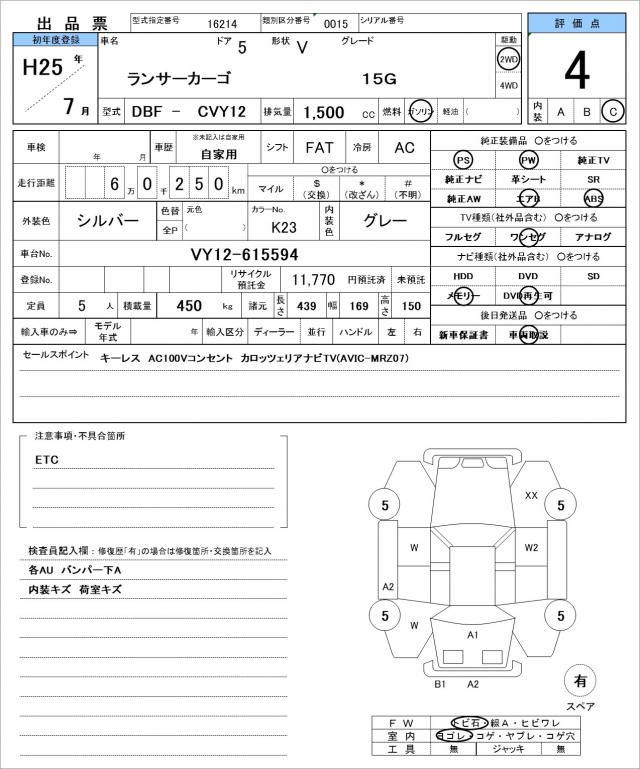 出品票 型式指定番号 16214 類別区分番号 0015 シリアル番号 評価点
初年度登録 車名 ドア 5 形状 V グレード 駆動
H25 年 ランサーカーゴ 15G 2WD 4
4WD
7 月 型式 DBF － CVY12 排気量 1,500 cc 燃料 ガソリン 軽油 ( ) 内装 A B C
車検 年 月 車歴 ※未記入は自家用 自家用 シフト FAT 冷房 AC 純正装備品 〇をつける
走行距離 6 万 0 千 2 5 0 km 〇をつける PS PW 純正TV
マイル $ (交換) * (改ざん) # (不明) 純正ナビ 革シート SR
外装色 シルバー 色替 元色 カラーNo. 内装色 グレー 純正AW エアB ABS
全P ( ) K23 TV種類(社外品含む) 〇をつける
フルセグ ワンセグ アナログ
車台No. VY12-615594 ナビ種類(社外品含む) 〇をつける
登録No. リサイクル預託金 11,770 円預託済 未預託 HDD DVD SD
定員 5 人 積載量 450 kg 諸元 長さ 439 幅 169 高さ 150 メモリー DVD再生可
後日発送品 〇をつける
輸入車のみ⇒ モデル年式 年 輸入区分 ディーラー 並行 ハンドル 左 右 新車保証書 車両取説
セールスポイント キーレス AC100Vコンセント カロッツェリアナビTV(AVIC-MRZ07)
注意事項・不具合箇所
ETC
検査員記入欄：修復歴「有」の場合は修復箇所・交換箇所を記入
各AU バンパー下A
内装キズ 荷室キズ
XX
5 5
W W2
A2
5 5
W
A1
B1 A2
有
スペア
FW トビ石・線A・ヒビワレ
室内 ヨゴレ・コゲ・ヤブレ・コゲ穴
工具 無 ジャッキ 無